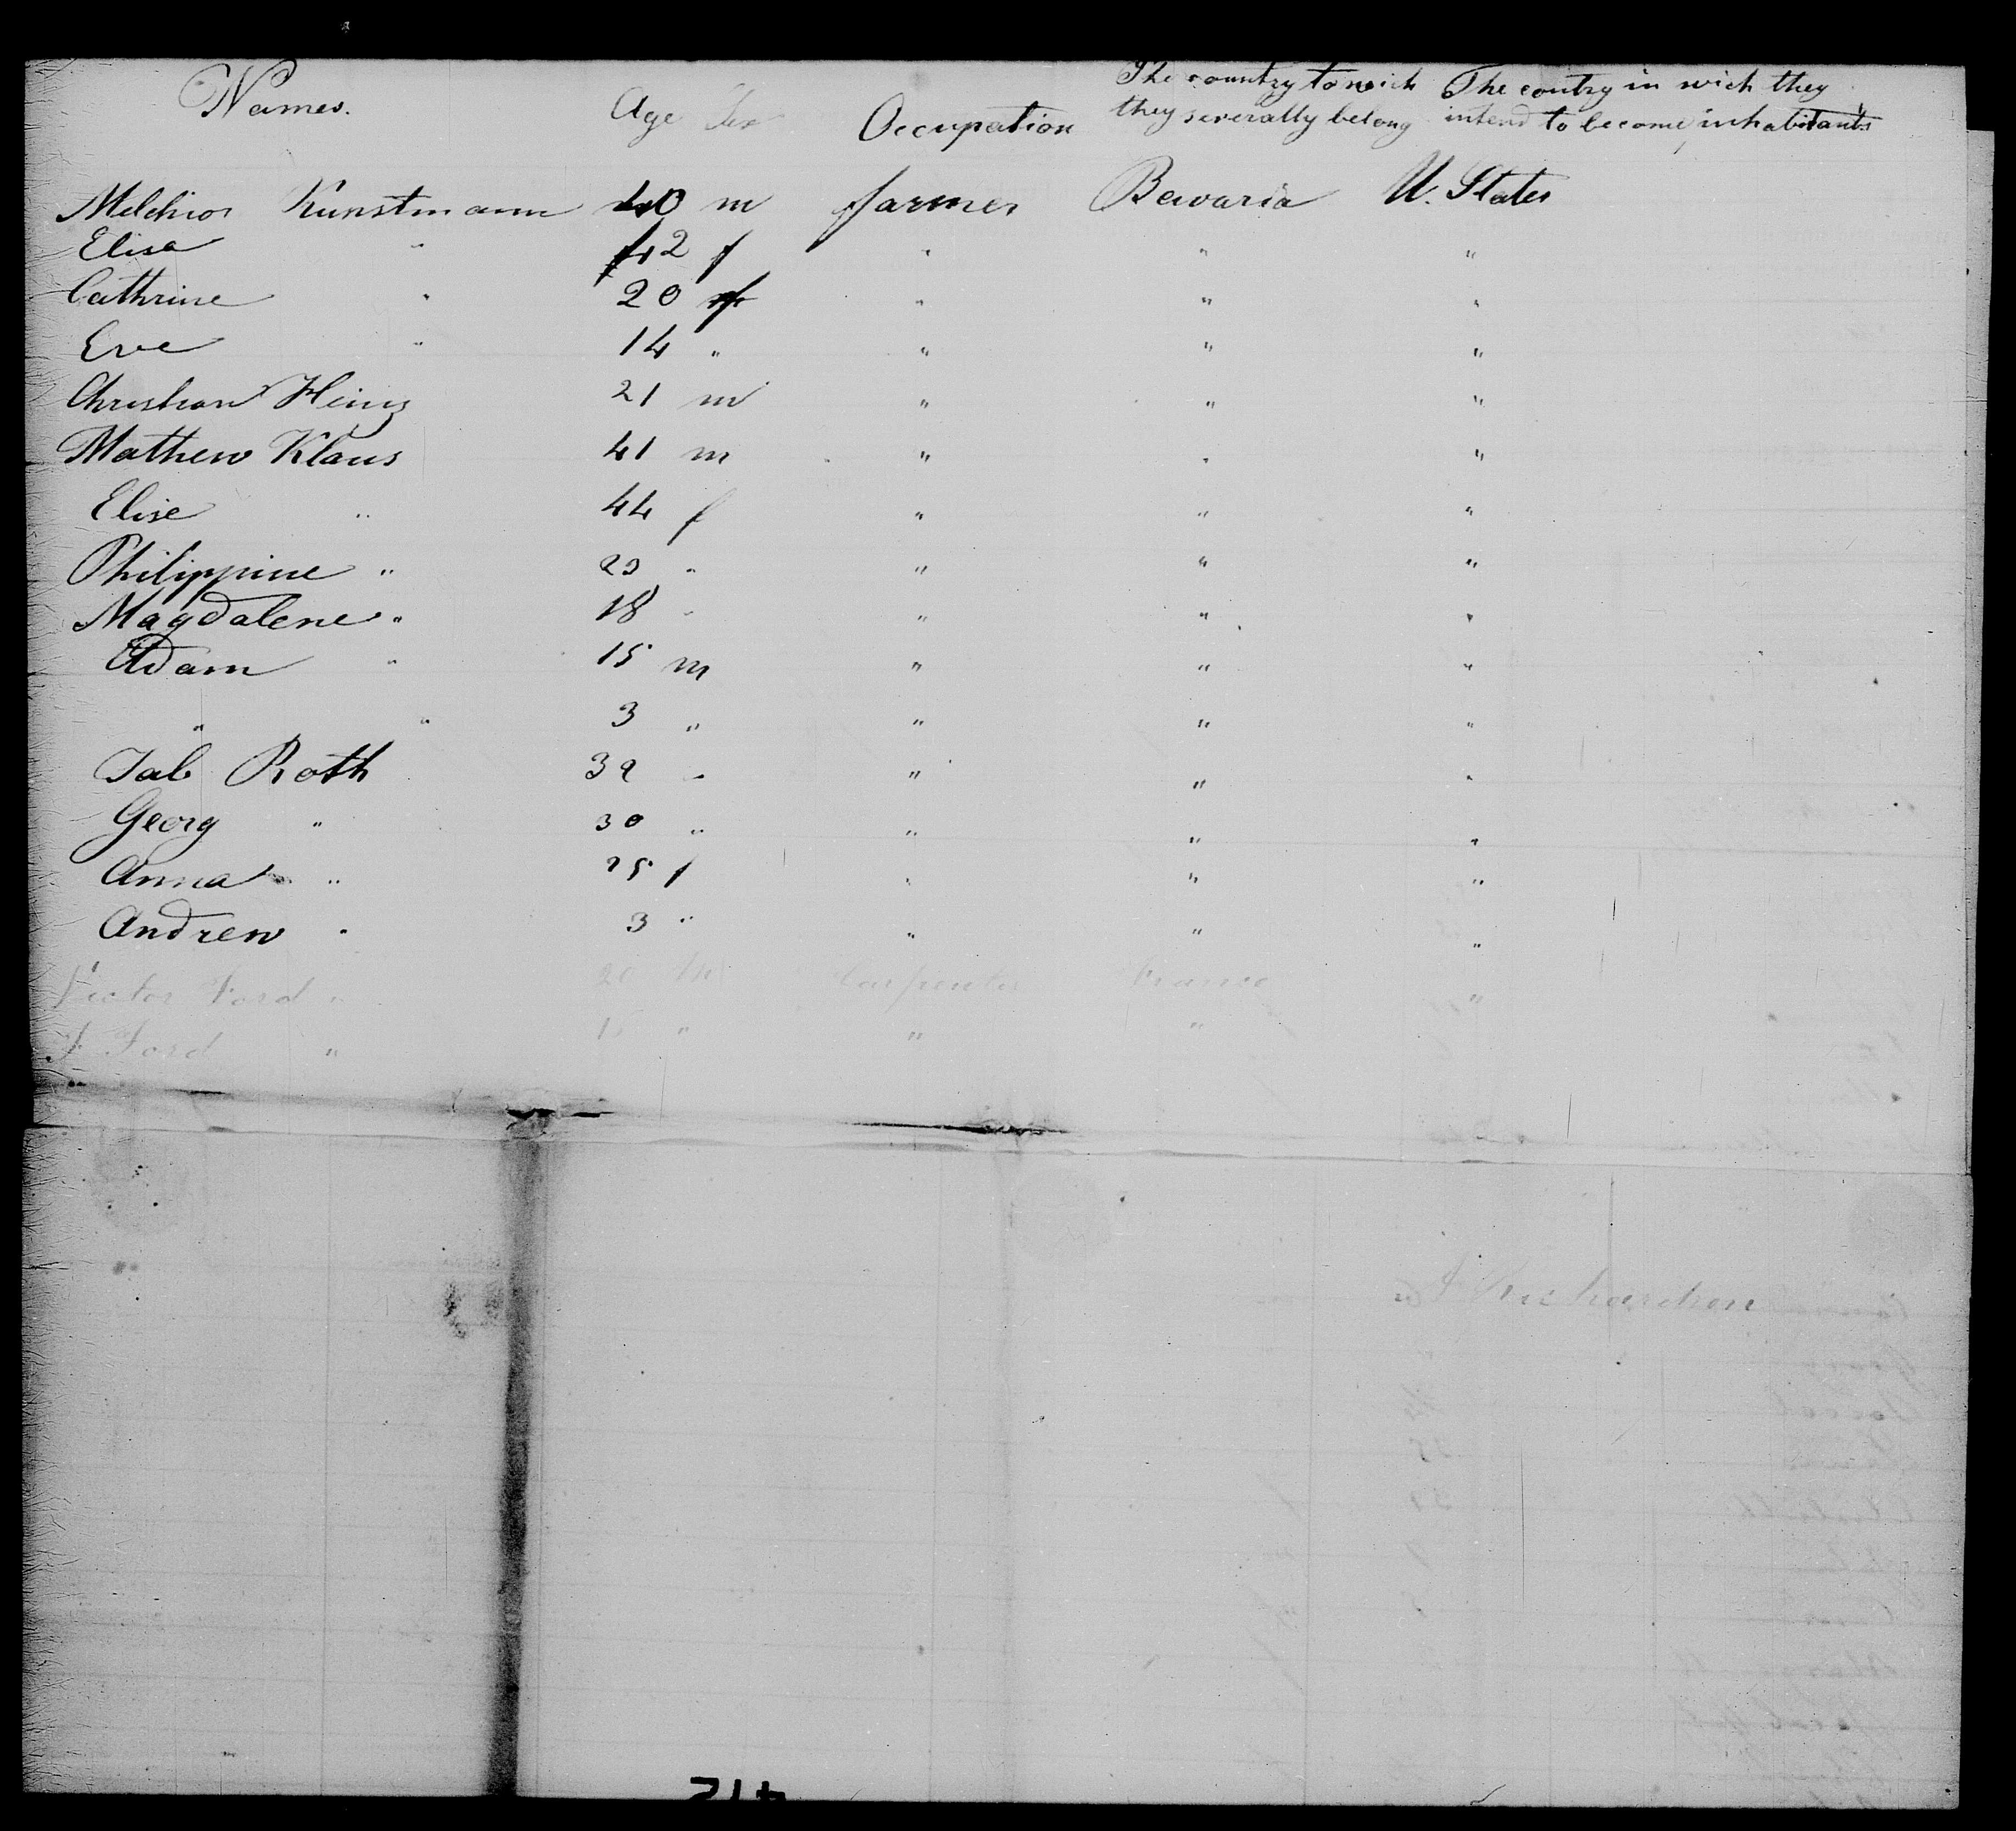 Names. Age Sex Occupation The country to wich they severally belong The contry in wich they intend to become inhabitants
Melchior Kunstmann 40 m farmer Bewaria U. States
Elisa " 42 f " " "
Cathrine " 20 f " " "
Eve " 14 " " " "
Christian Heinz 21 m " " "
Mathew Klaus 41 m " " "
Elise " 44 f " " "
Philippine " 20 " " " "
Magdalene " 18 " " " "
Adam " 15 m " " "
" " 3 " " " "
Jab Roth 39 " " " "
Georg " 30 " " " "
Anna " 25 f " " "
Andrew " 3 " " " "
Victor Ford " 20 M Carpenter France "
F Ford " " " "
J Richardson